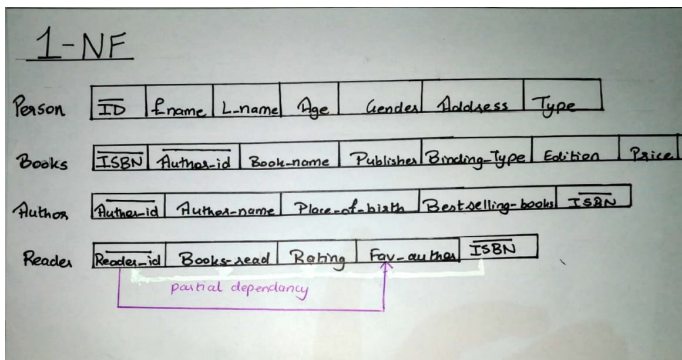 1-NF
Person ID f_name L_name Age Gender Address Type
Books ISBN Author_id Book_name Publisher Binding_Type Edition Price
Author Author_id Author_name Place_of_birth Best selling_books ISBN
Reader Reader_id Books_read Rating Fav_author ISBN
partial dependancy